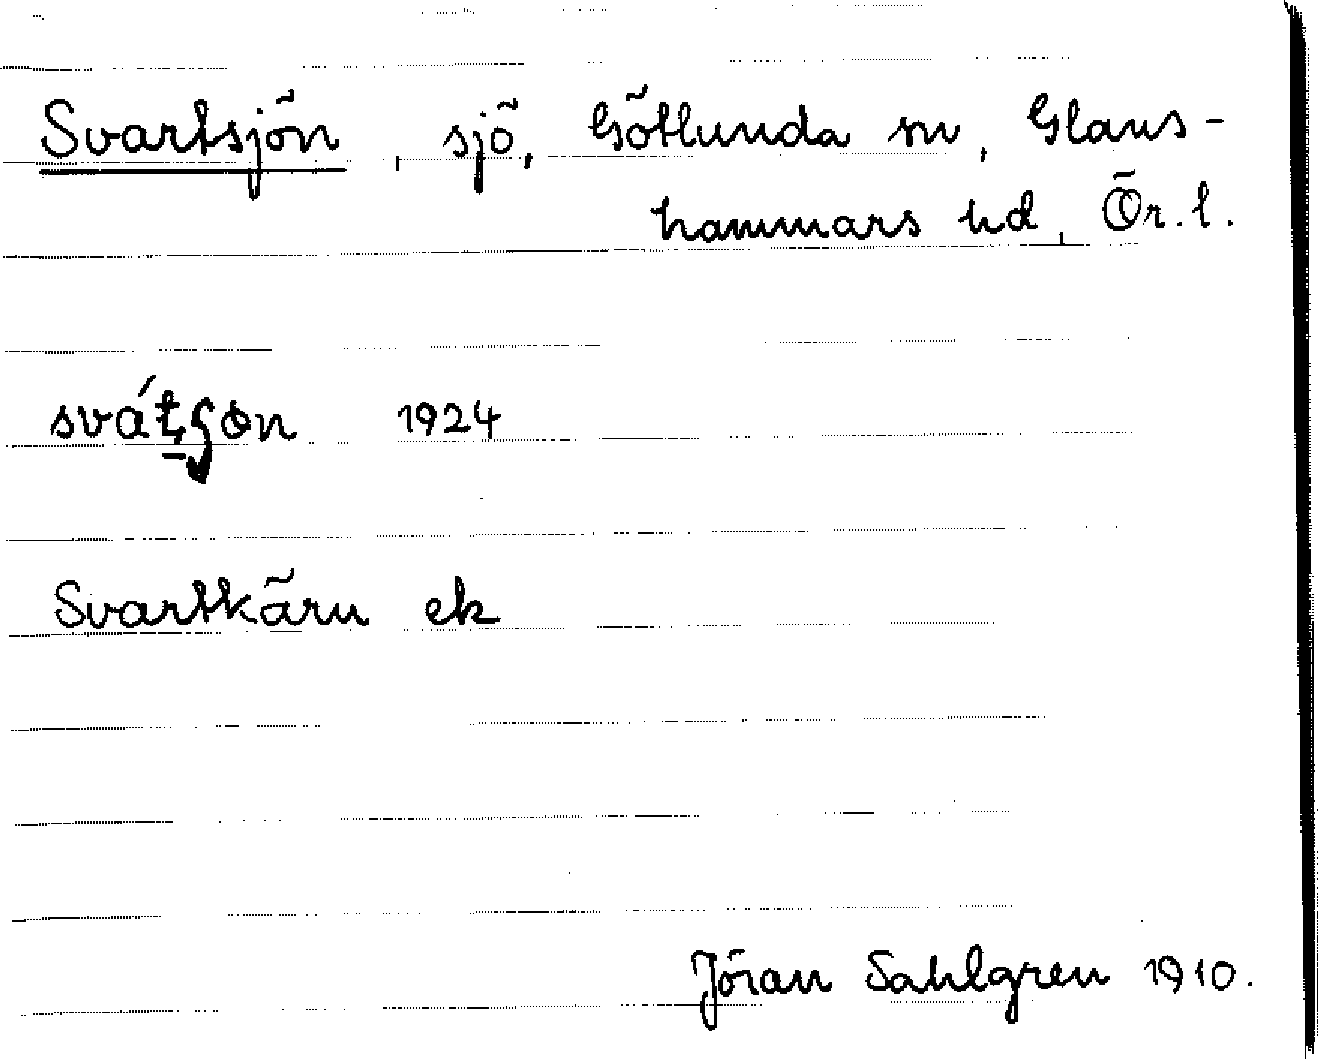 Svartsjön, sjö, Götlunda sn, Glans-
hammars hd, Ör. l.
1924
Svartkäru ek
Jöran Sahlgren 1910.